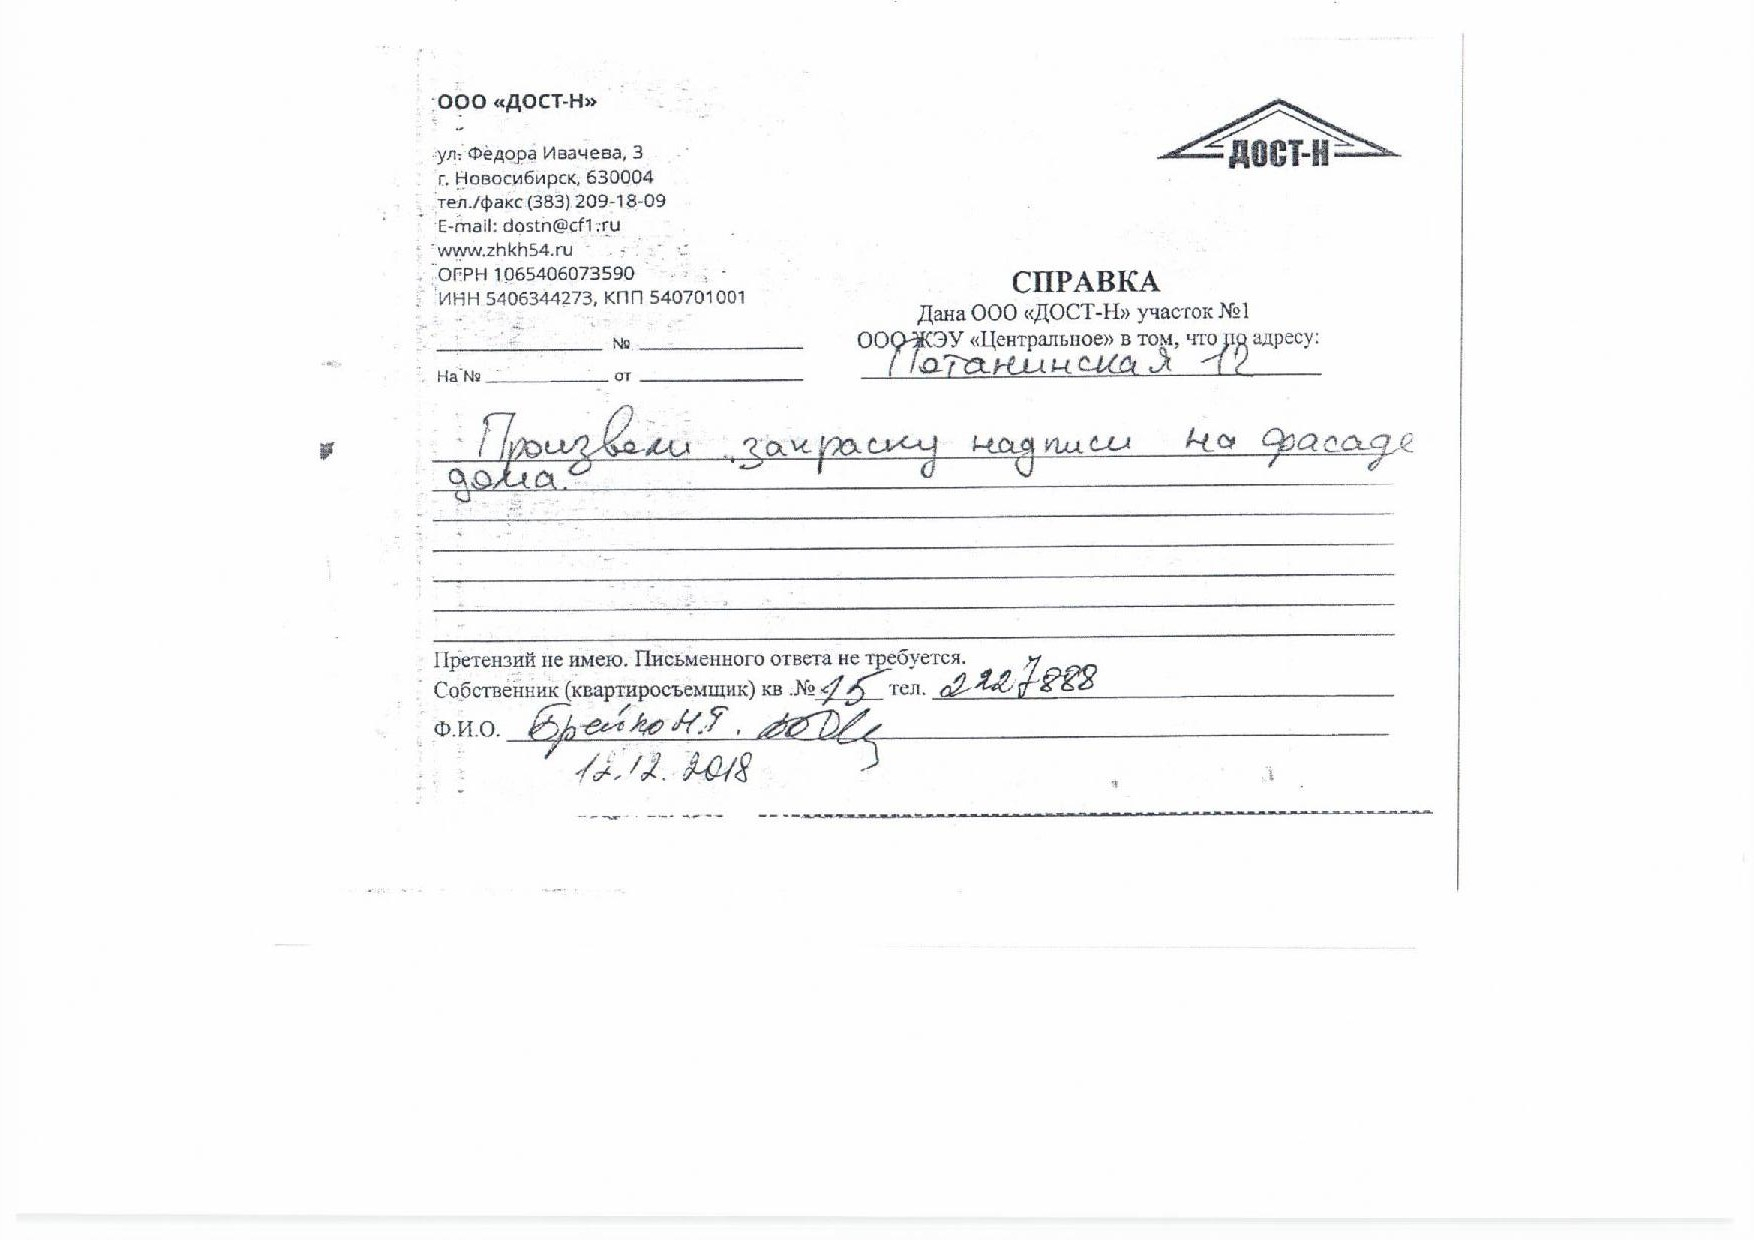 ООО «ДОСТ-Н»
ул. Фёдора Ивачева, 3
г. Новосибирск, 630004
тел./факс (383) 209-18-09
E-mail: dostn@cf1.ru
www.zhkh54.ru
ОГРН 1065406073590
ИНН 5406344273, КПП 540701001
№
На № от
ДОСТ-Н
СПРАВКА
Дана ООО «ДОСТ-Н» участок №1
ООО ЖЭУ «Центральное» в том, что по адресу:
Потанинская 12
Произвели закраску надписи на фасаде
дома.
Претензий не имею. Письменного ответа не требуется.
Собственник (квартиросъемщик) кв .№ 15 тел. 2227888
Ф.И.О. Н.Г.
12.12.2018